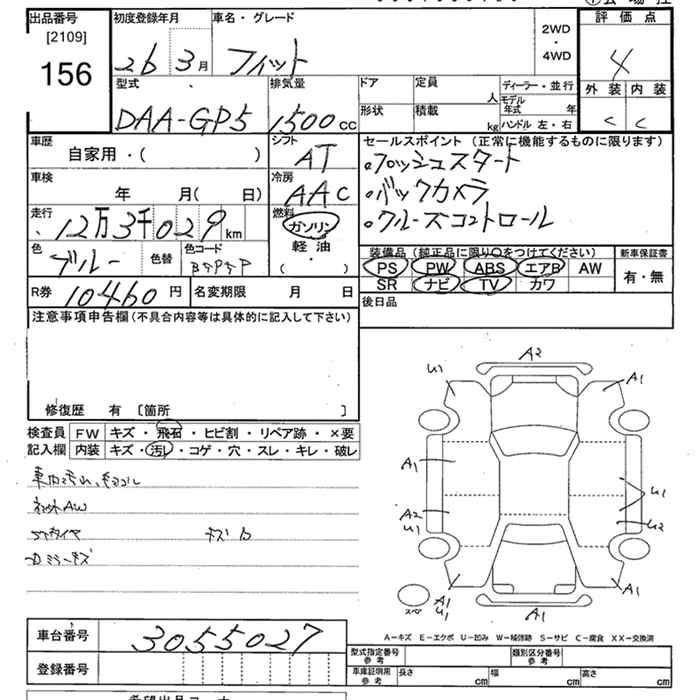 出品番号
[2109]
156
初度登録年月
26 3月
車名・グレード
フィット
2WD
・
4WD
評価点
4
外装 内装
C C
型式
DAA-GP5
排気量
1500cc
ドア
形状
定員
人
積載
kg
ディーラー・並行
モデル年式 年
ハンドル 左・右
車歴
自家用・( )
シフト
AT
車検
年 月( 日)
冷房
AAC
走行
12万3千029km
燃料
ガソリン
軽油
・
( )
色
ブルー
色替
色コード
セールスポイント (正常に機能するものに限ります)
・プッシュスタート
・バックカメラ
・クルーズコントロール
装備品 (純正品に限り○をつけてください)
PS PW ABS エアB AW
SR ナビ TV カワ
新車保証書
有・無
R券 10460円
名変期限 月 日
後日品
注意事項申告欄(不具合内容等は具体的に記入して下さい)
修復歴 有 〔箇所 〕
検査員
記入欄
FW キズ・飛石・ヒビ割・リペア跡・×要
内装 キズ・汚・コゲ・穴・スレ・キレ・破レ
AW
キズ
ミラーキズ
A2
U1
A1
A1
U1
A2
U1
U2
A1
U1
A1
A1
スペア
A-キズ E-エクボ U-凹み W-補修跡 S-サビ C-腐食 XX-交換済
車台番号 3055027
登録番号
型式指定番号
参考
類別区分番号
参考
車庫証明用
参考
長さ cm
幅 cm
高さ cm